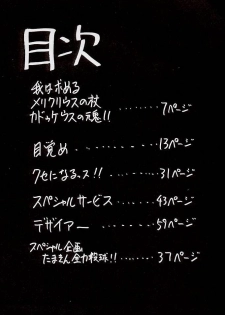 目次
我は求める
メリクリウスの杖
カドゥケウスの魂!! ········7ページ
目覚め ········13ページ
クセになるゥス!! ········31ページ
スペシャルサービス ······43ページ
デザイアー ········59ページ
スペシャル企画
たまきん全力投球!! ······37ページ